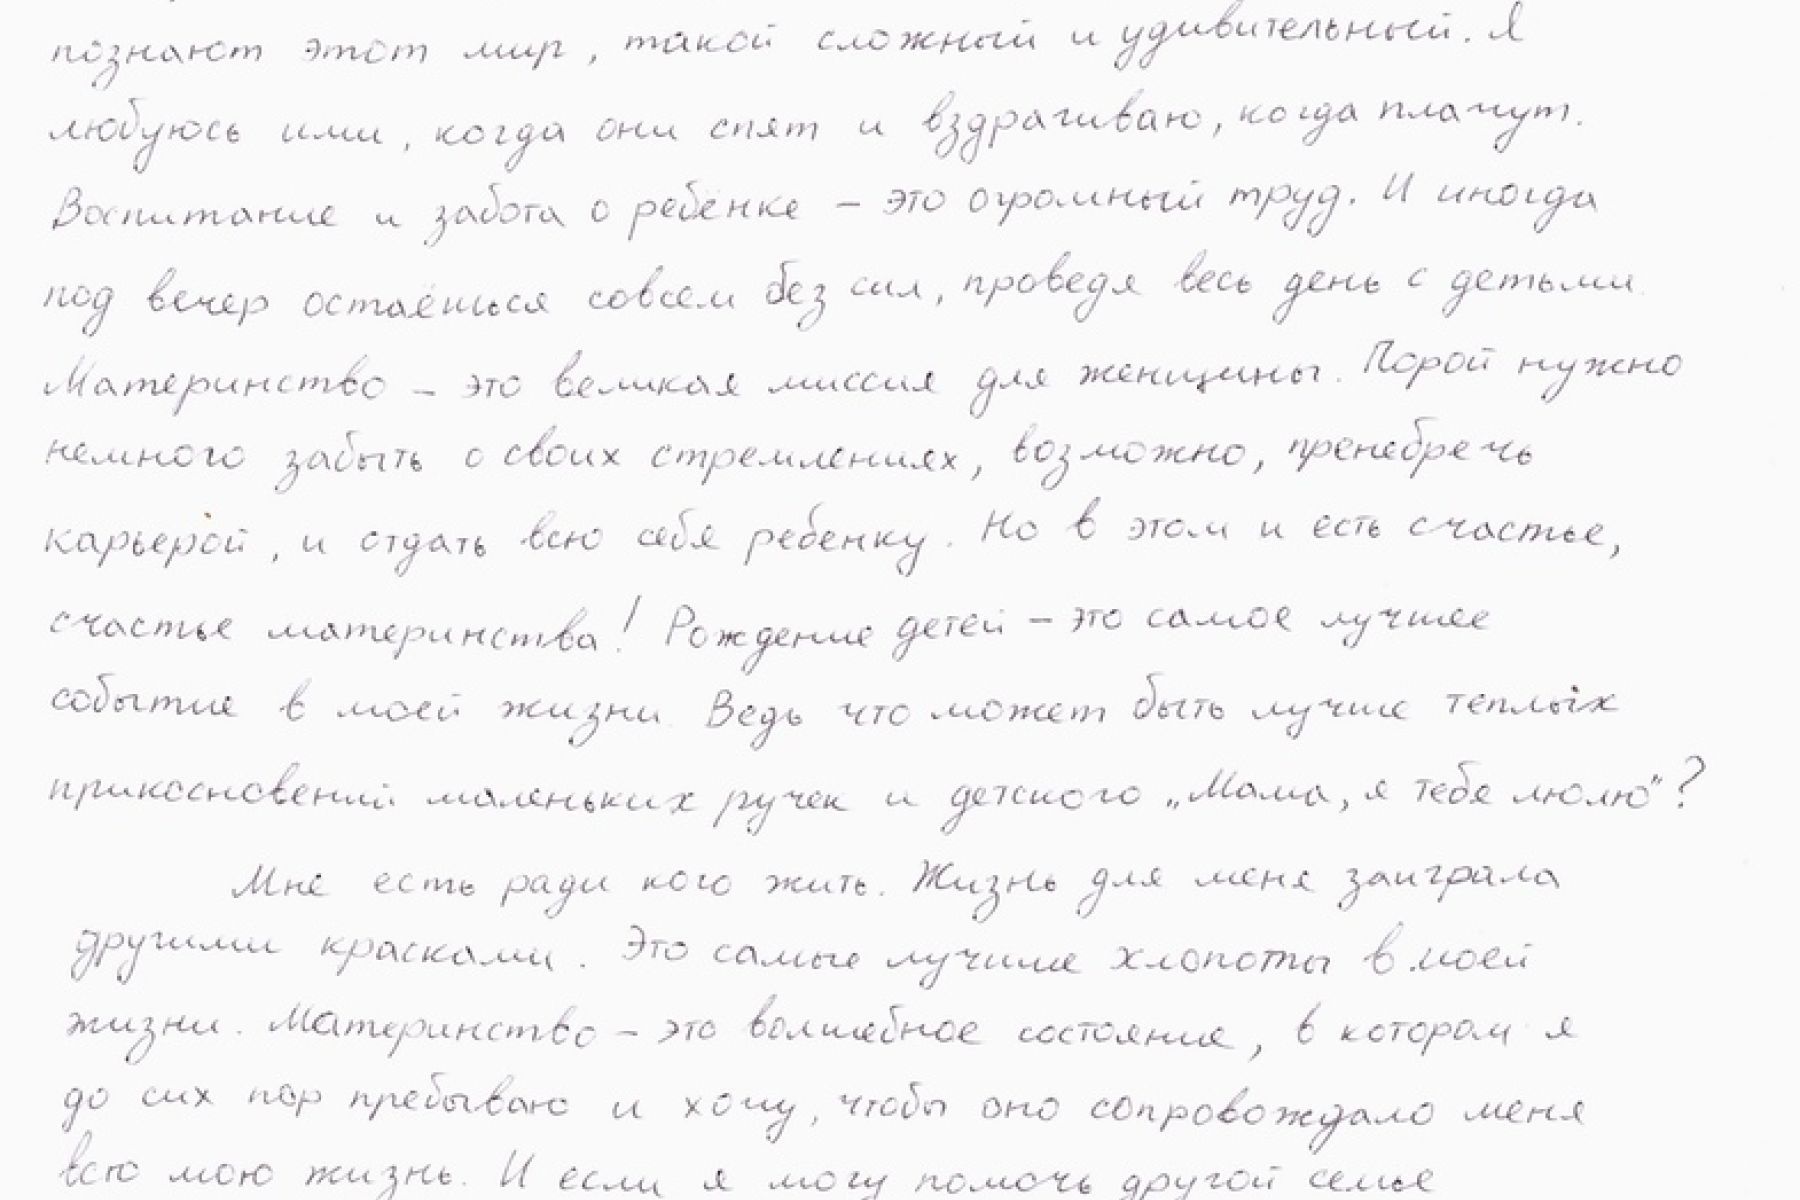 познают этот мир, такой сложный и удивительный. Я
любуюсь ими, когда они спят и вздрагиваю, когда плачут.
Воспитание и забота о ребёнке – это огромный труд. И иногда
под вечер остаёшься совсем без сил, проведя весь день с детьми.
Материнство – это великая миссия для женщины. Порой нужно
немного забыть о своих стремлениях, возможно, пренебречь
карьерой, и отдать всю себя ребенку. Но в этом и есть счастье,
счастье материнства! Рождение детей – это самое лучшее
событие в моей жизни. Ведь что может быть лучше теплых
прикосновений маленьких ручек и детского „Мама, я тебя люлю"?
Мне есть ради кого жить. Жизнь для меня заиграла
другими красками. Это самые лучшие хлопоты в моей
жизни. Материнство – это волшебное состояние, в котором я
до сих пор пребываю и хочу, чтобы оно сопровождало меня
всю мою жизнь. И если я могу помочь другой семье